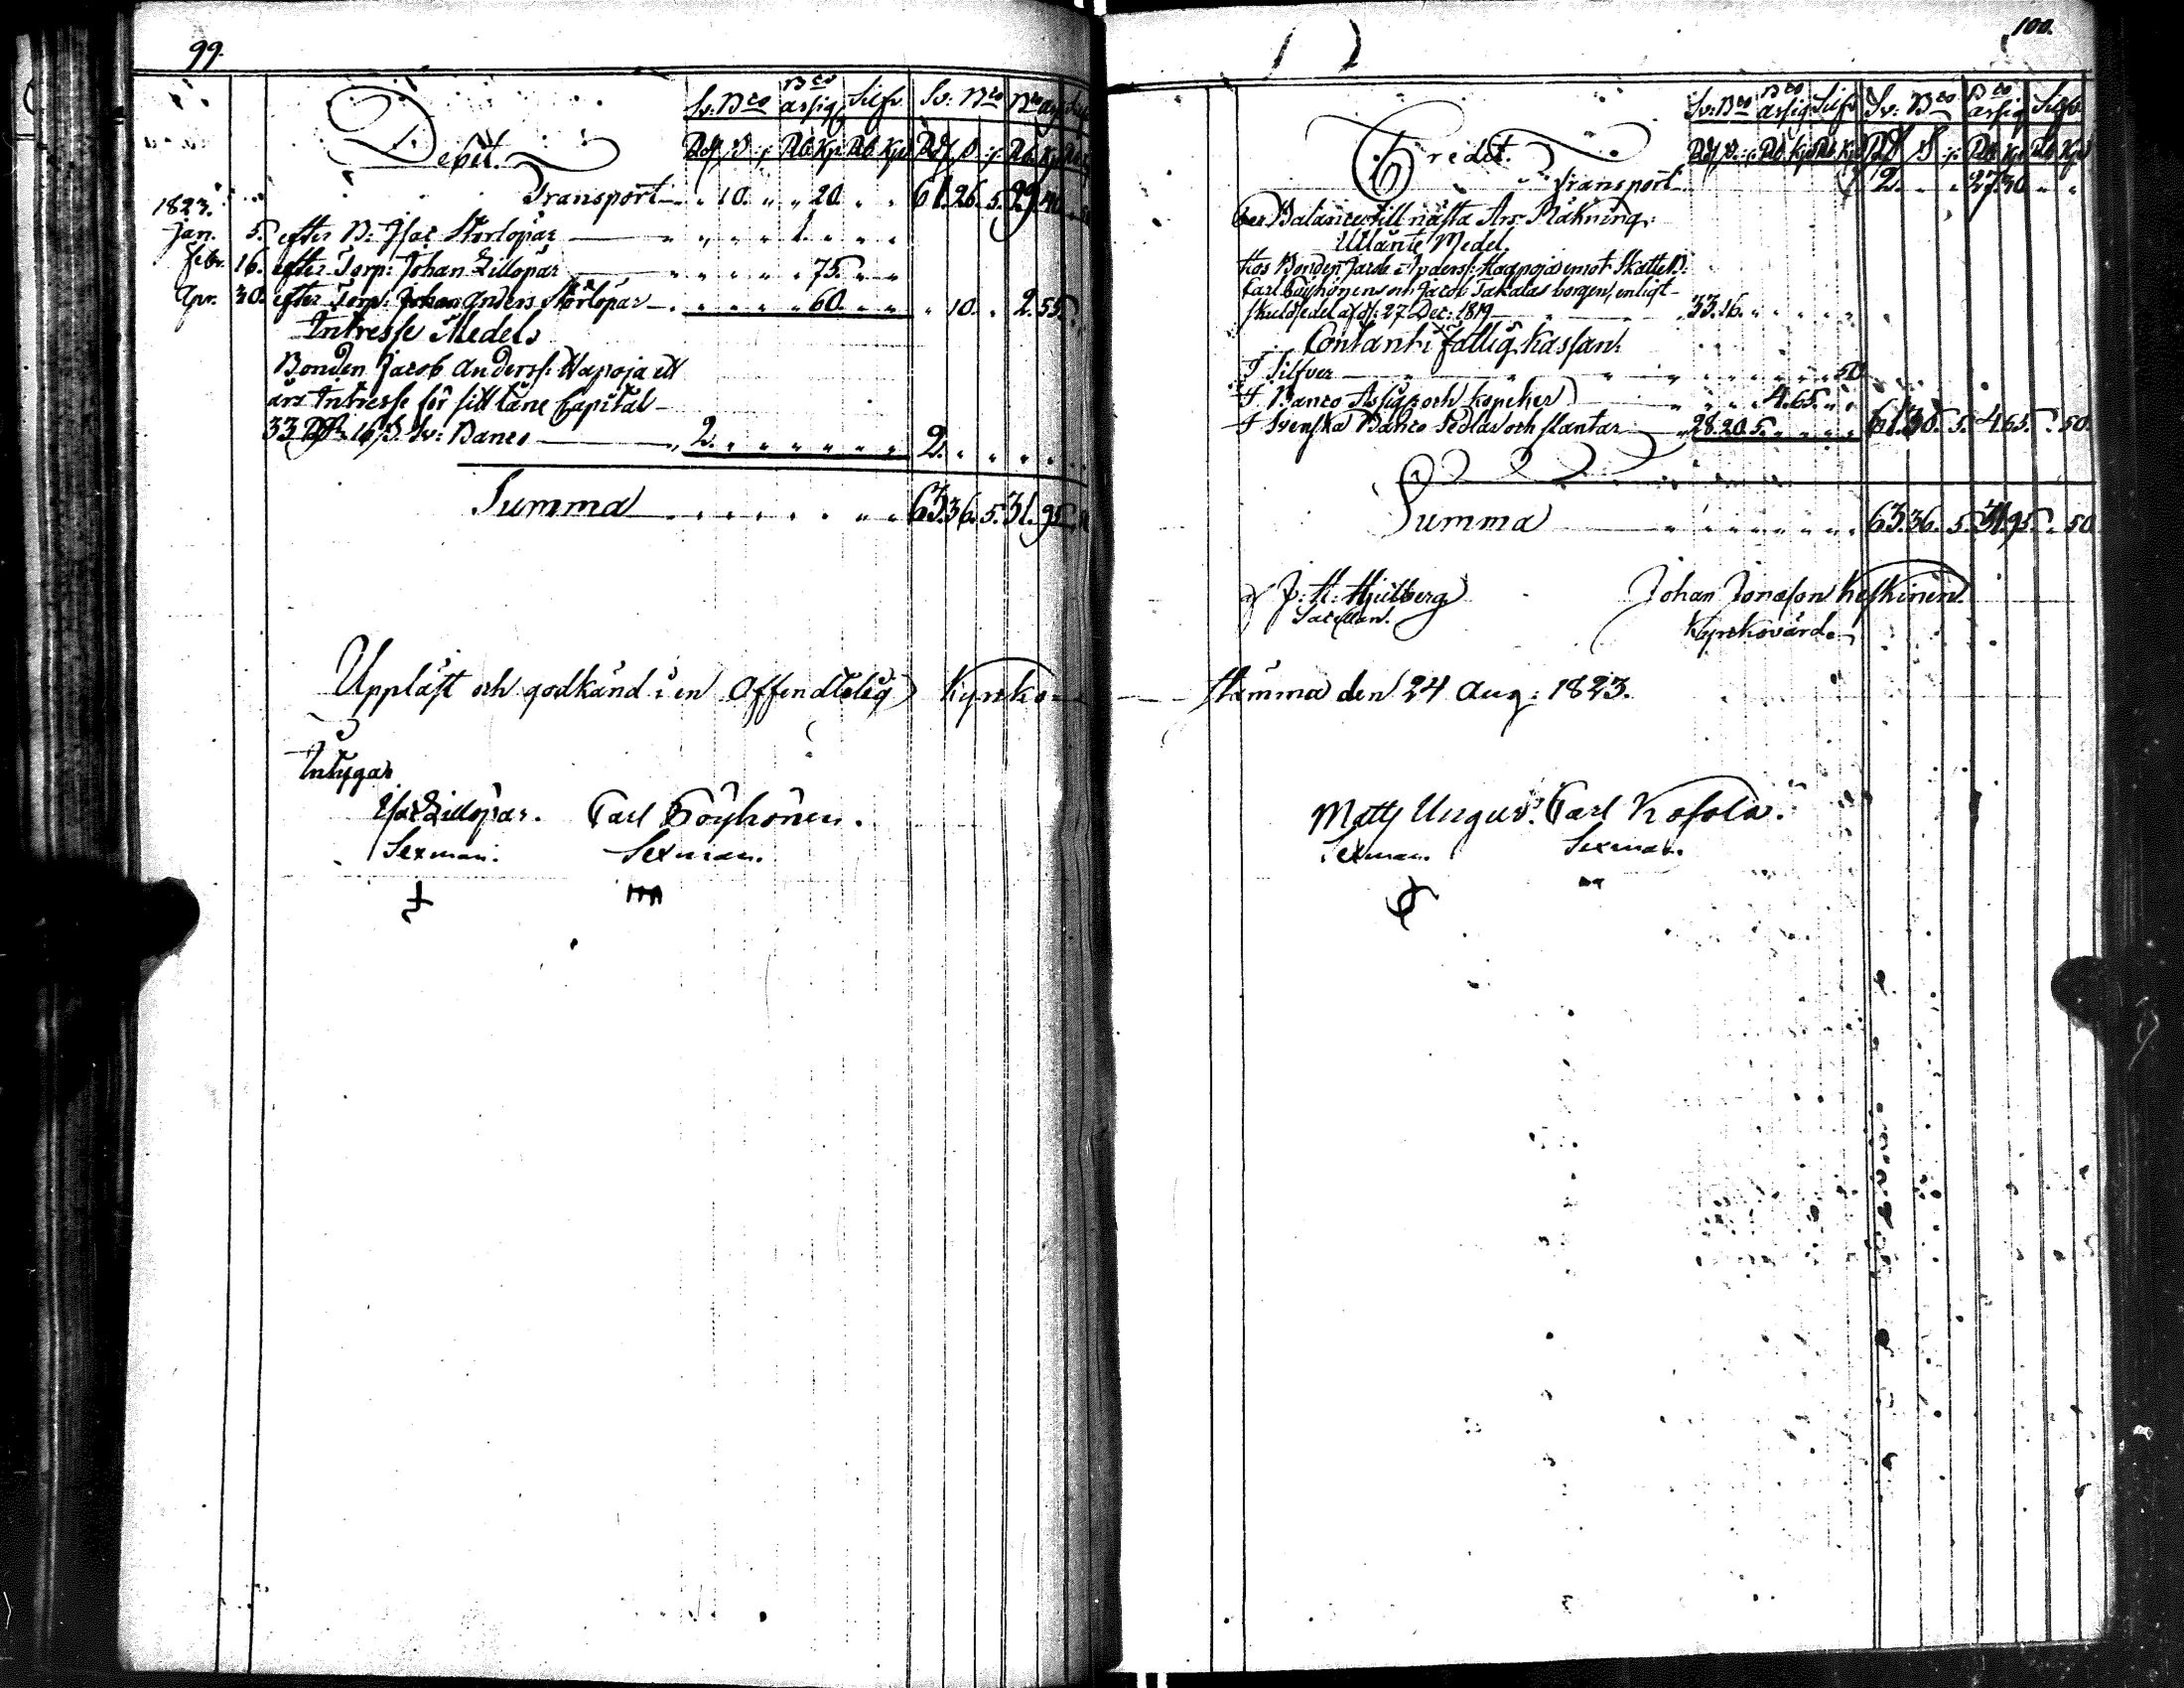 99.
Debet.
Sv: Bco Bco assig Silfv Sv: Bco Bco assig
Rdr ß rst Rb Kp Rb Kp Rdr ß rst Rb Kp
Transport 10. 20. 61. 26. 5. 29. 40
1823.
Jan. 5. efter B: Isac Storlopar 1.
Febr. 16. efter Torp: Johan Lillopar 75.
Apr. 30. efter Torp: Johan Anders Storlopar 60. 10. 2. 55.
Intresse Medel
Bonden Jacob Anderss: Haapoja ett
års Intresse för sitt låne Capital
33 Rdr 16 ß. Sv: Banco 2. 2.
Summa 63. 36. 5. 31. 95
Uppläst och godkänd i en Offendtelig Kyrko-
Intygar
Isac Lillopar. Carl Böyhönen.
Sexman. Sexman.
100.
Credit.
Sv: Bco Bco assig Silfv Sv: Bco Bco assig Silfv
Rdr ß rst Rb Kp Rb Kp Rdr ß rst Rb Kp Rb Kp
Transport 2. 27. 30
Balance till nästa Års Räkning:
Utlånte Medel.
hos Bonden Jacob Anderss: Haapoja emot Skatte B:
Carl Böyhönens och Jacob Takalas borgen, enligt
skuldsedel af d: 27 Dec: 1819 33. 16.
Contant i fattig Kassan:
I Silfver 50
I Banco Assign: och kopeker 4. 65.
I Svenska Banco Sedlar och slantar 28. 20. 5. 61. 36. 5. 4. 65. 50.
Summa 63. 36. 5. 31. 95. 50
J: H: Hjulberg Johan Jonasson Keskinen.
Sacellan. Kyrkovärd.
stämma den 24 Aug: 1823.
Matts Ungus. Carl Kosola.
Sexman. Sexman.